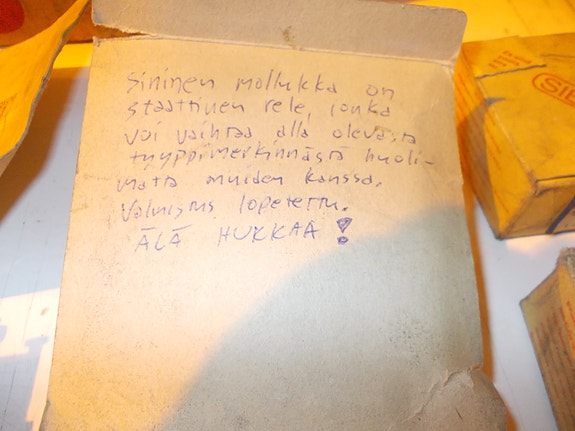 Sininen mollukka on
staattinen rele, jonka
voi vaihtaa alla olevasta
tyyppimerkinnästä huoli-
matta muiden kanssa.
Valmistus lopetettu.
ÄLÄ HUKKAA!